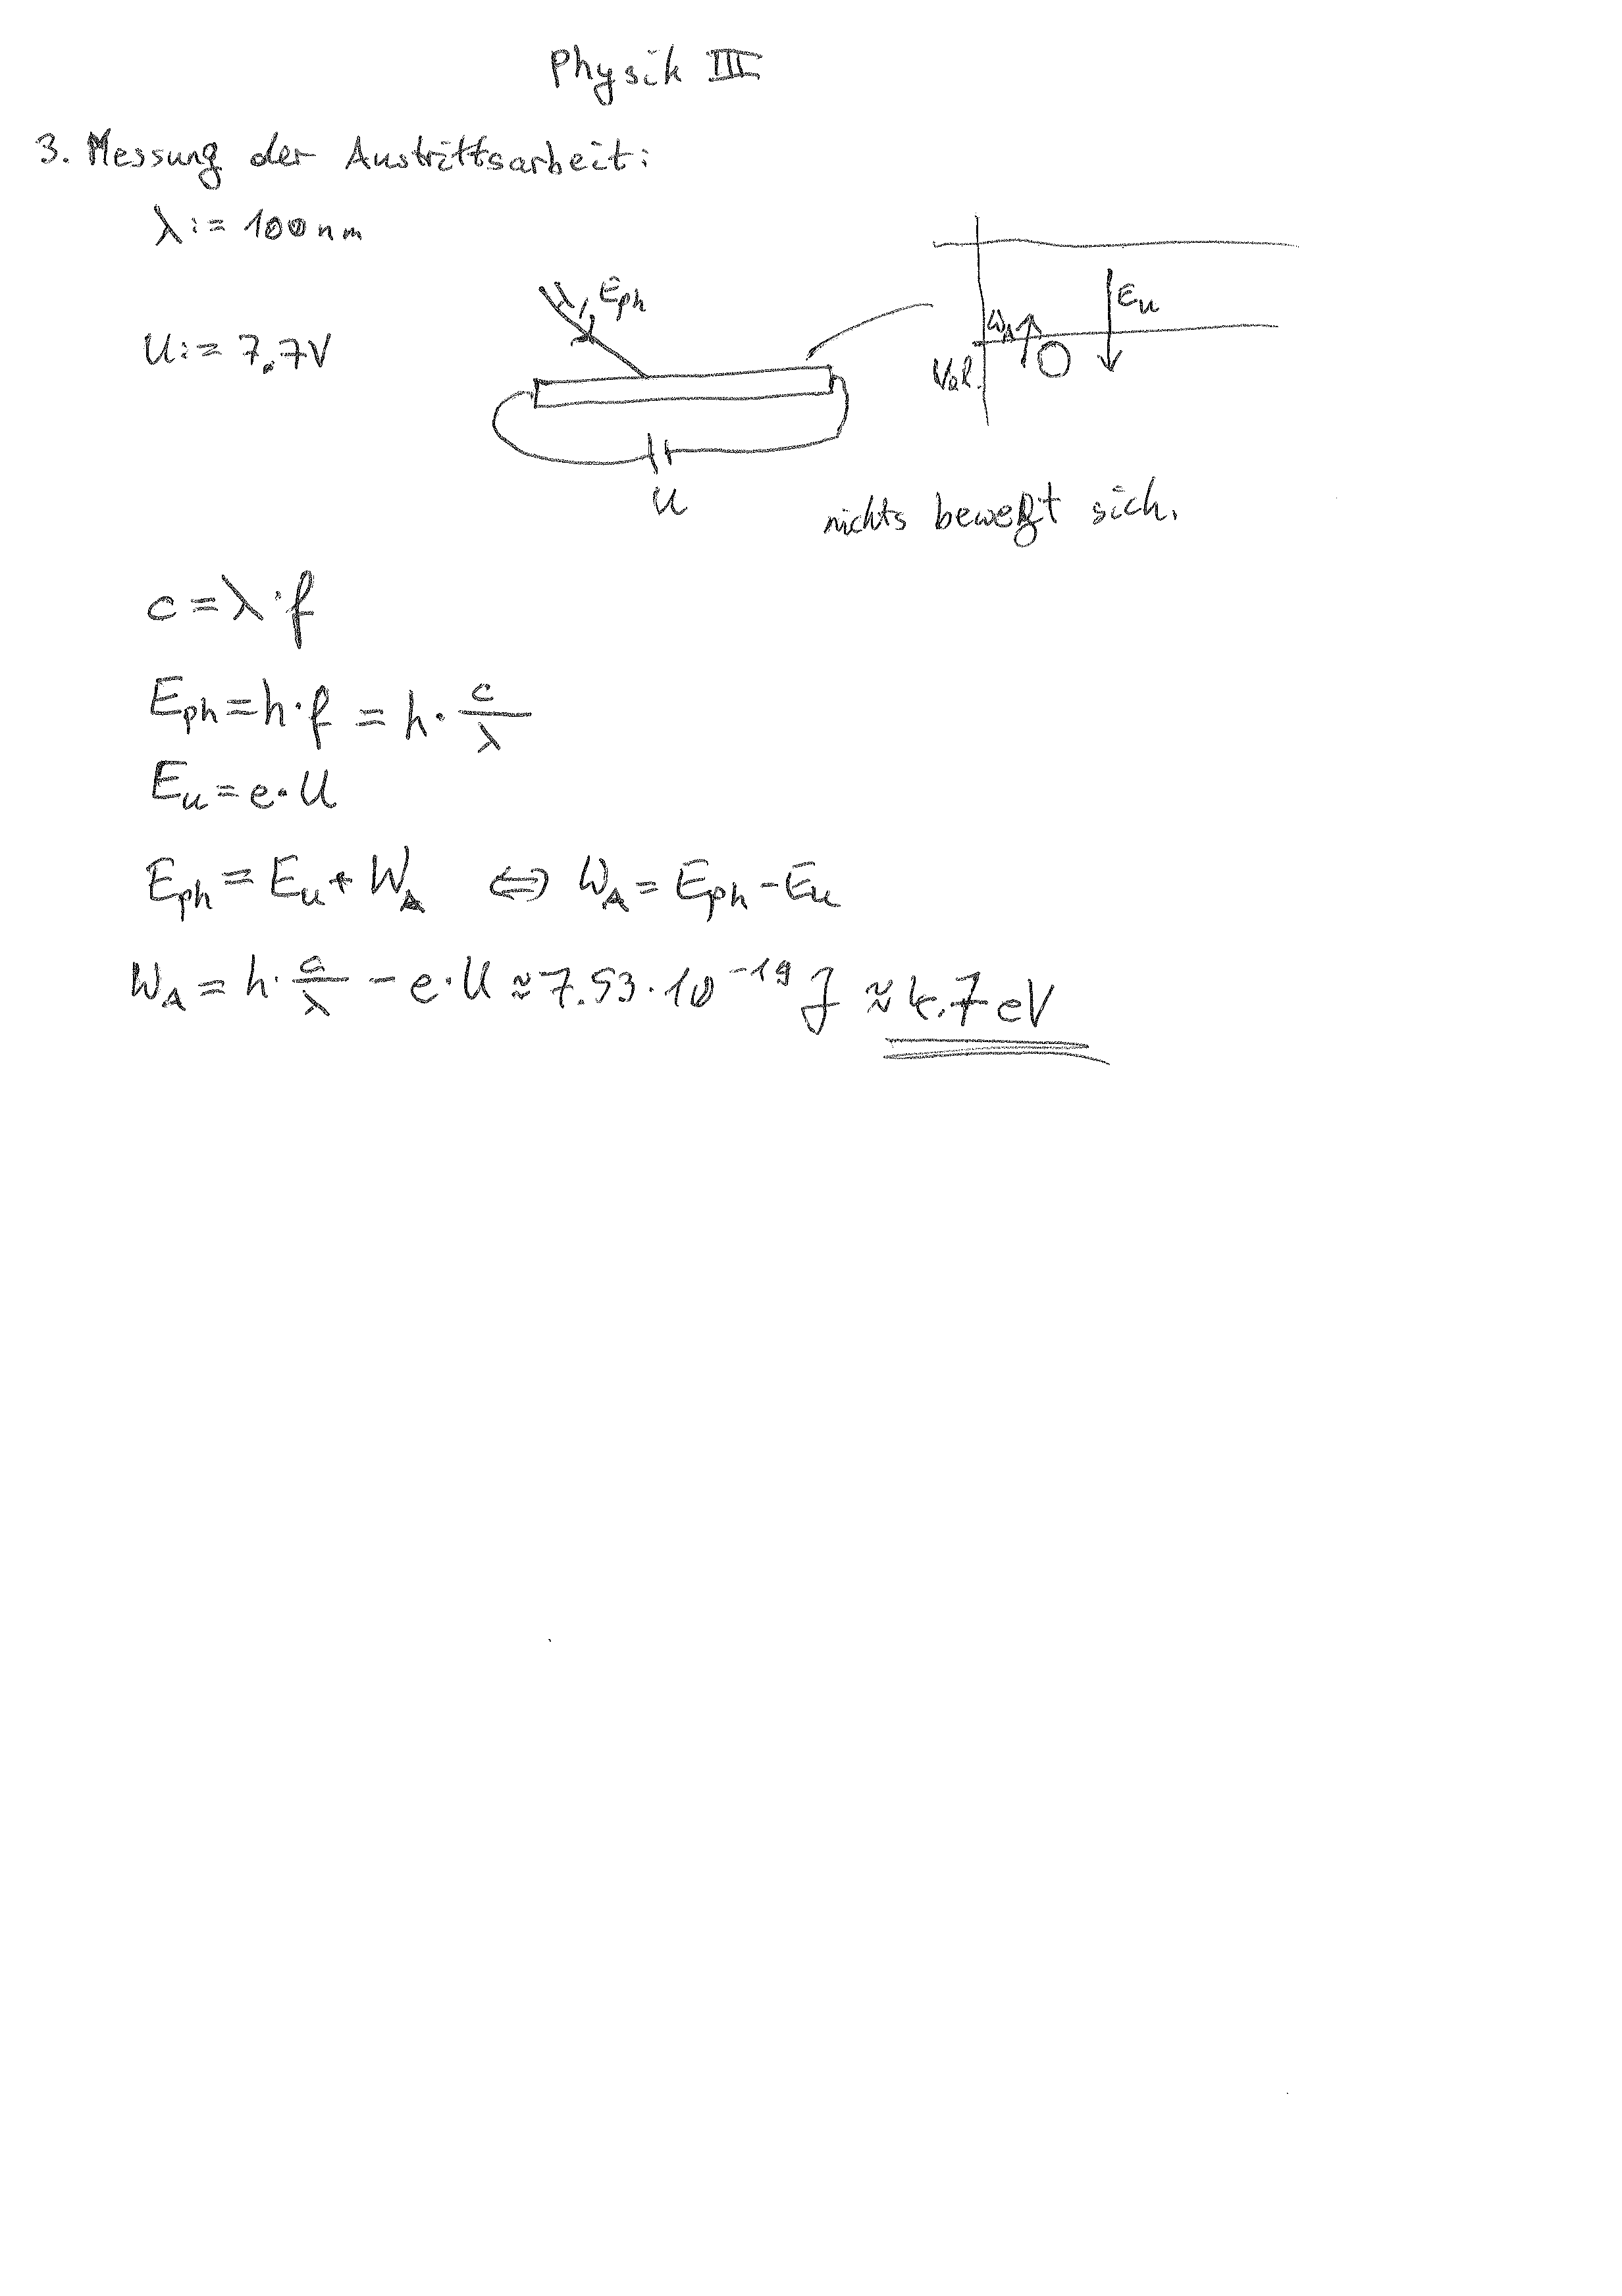 Physik III
3. Messung der Austrittsarbeit:
λ := 100nm
U := 7.7V
μ, E_ph
U
W_A
E_u
Val.
nichts bewegt sich.
c = λ · f
E_ph = h · f = h · c/λ
E_u = e · U
E_ph = E_u + W_A ⇔ W_A = E_ph - E_u
W_A = h · c/λ - e · U ≈ 7.53 · 10^-19 J ≈ 4.7 eV